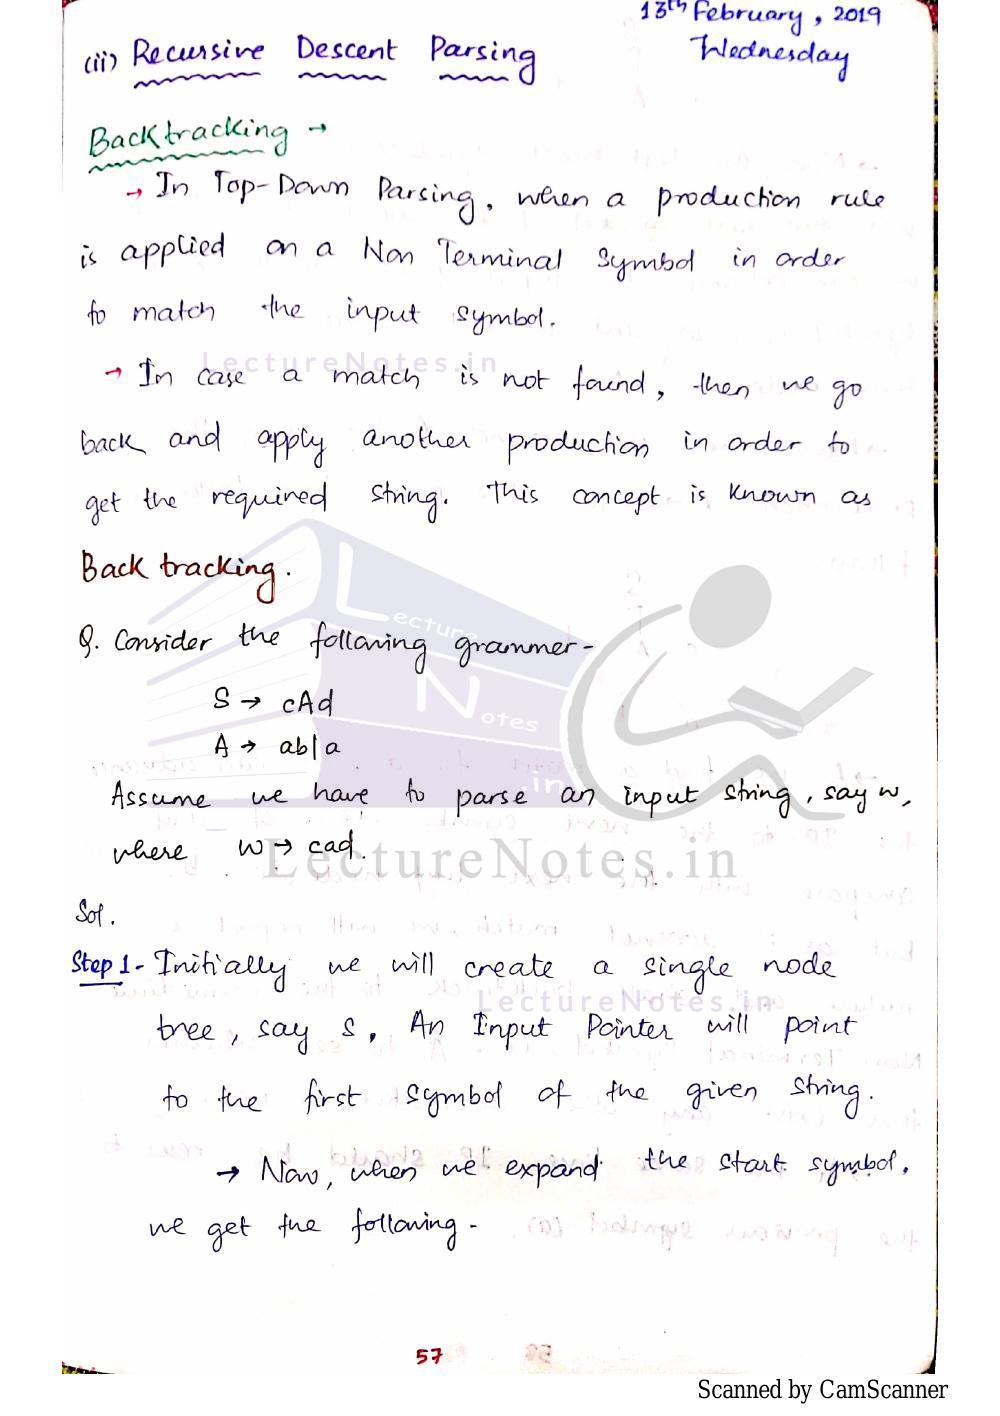 13th February, 2019
Wednesday
(ii) Recursive Descent Parsing
Backtracking →
→ In Top-Down Parsing, when a production rule
is applied on a Non Terminal Symbol in order
to match the input symbol.
LectureNotes.in
→ In case a match is not found, then we go
back and apply another production in order to
get the required string. This concept is known as
Back tracking.
Lecture
Notes
.in
Q. Consider the following grammer -
S → cAd
A → ab|a
Assume we have to parse an input string, say w,
where w → cad.
LectureNotes.in
Sol.
Step 1 - Initially we will create a single node
LectureNotes.in
tree, say S. An Input Pointer will point
to the first symbol of the given string.
→ Now, when we expand the start symbol,
we get the following -
57
Scanned by CamScanner